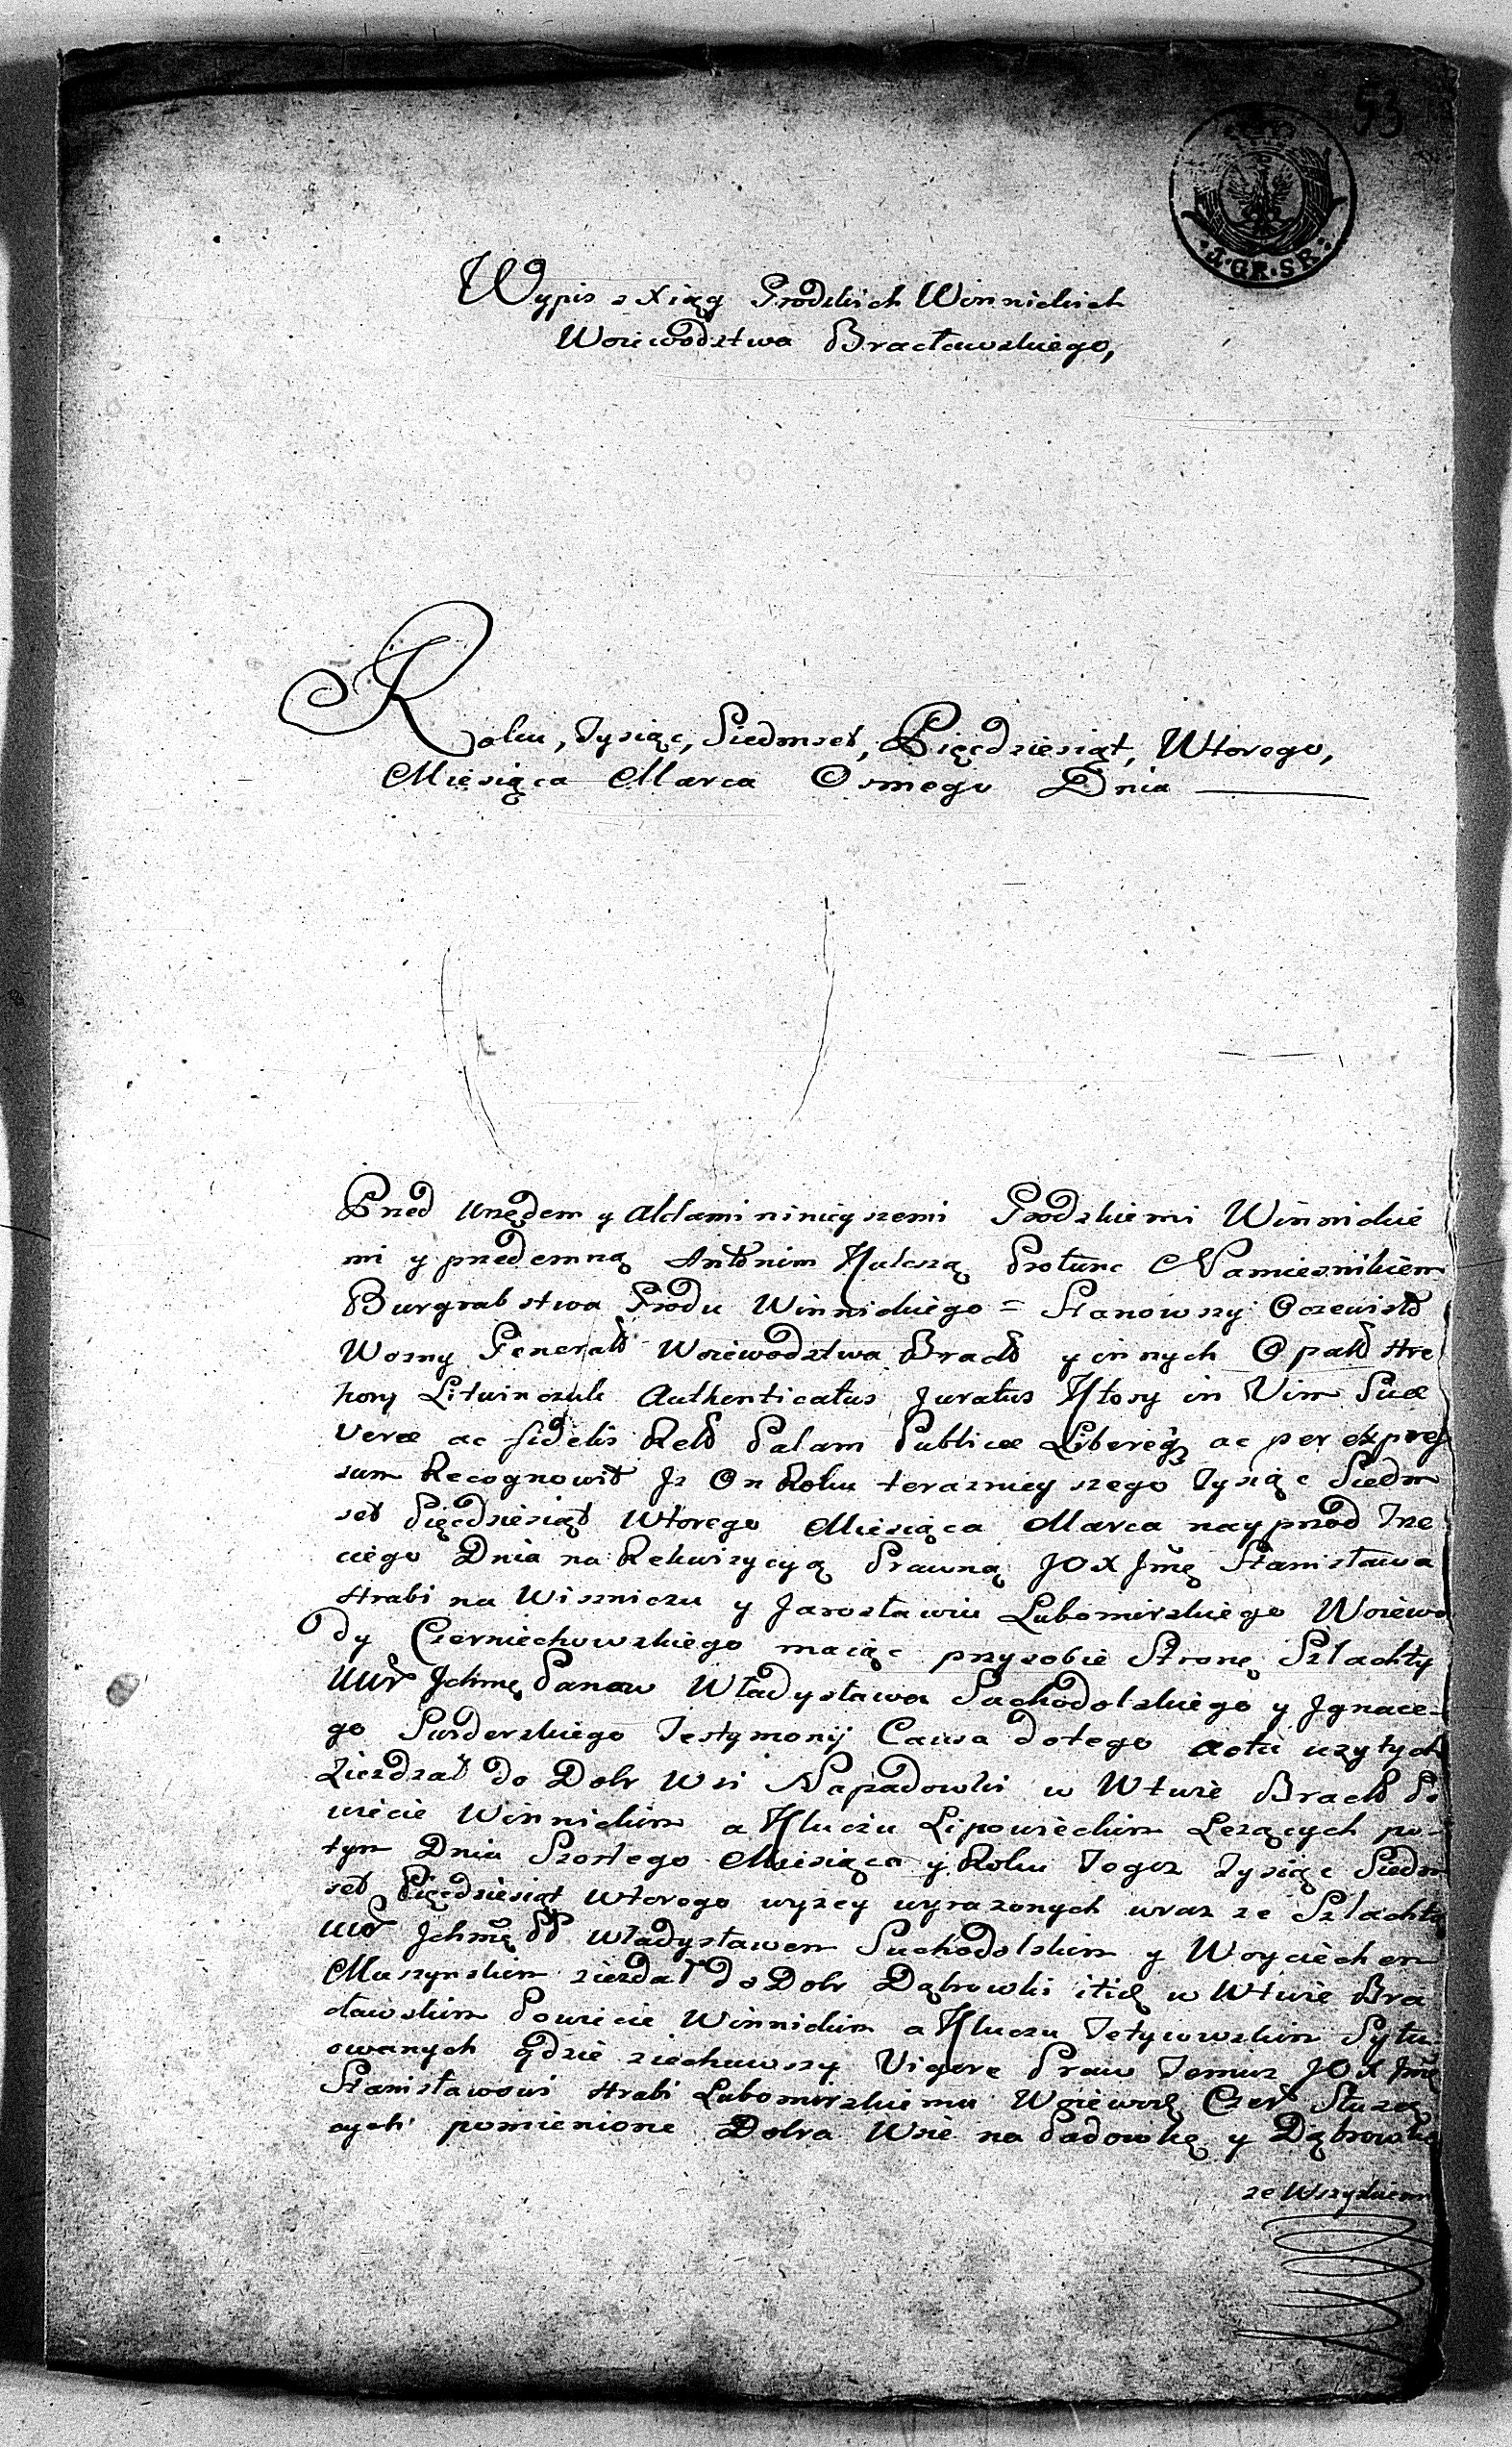 53
1·GR·SR·
Wypis z Xiąg Grodzkich Winnickich
Woiewodztwa Bracławskiego,
Roku, Tysiąc, Siedmset, Pięcdziesiąt, Wtorego,
Miesiąca Marca Osmego Dnia
Przed Urzędem y Aktami ninieyszemi Grodzkiemi Winnickie
mi y przedemną Antonim Hulczą Protunc Namiesnikiem
Burgrabstwa Grodu Winnickiego = Stanowszy Oczewisto
Wozny Generał Woiewodztwa Bracło y innych Opatr Hre
hory Litwinczuk Authenticatus Juratus Ktory in Vim Suæ
Veræ ac fidelis Rello Palam Publicæ Libereq ac per expres
sum Recognowit Jz On Roku terazniey szego Tysiąc Siedm
set Pięcdziesiąt Wtorego Miesiąca Marca nayprzod Trze
ciego Dnia na Rekwizycyą Prawną JOX Jmę Stanisława
Hrabi na Wiszniczu y Jarosławiu Lubomirskiego Woiewo
dy Czerniechowskiego maiąc przysobie Stronę Szlachty
Uur Jchmę Panow Władysława Suchodolskiego y Jgnace-
go Swiderskiego Testymonij Causa dotego actu uzytych
Ziezdzał do Dobr Wsi Napadowki w Wtwie Bracło Po
wiecie Winnickim a Kluczu Lipowieckim Lezących po-
tym Dnia Szostego Miesiąca y Roku Tegoz Tysiąc Siedm
set Pięcdziesiąt Wtorego wyzey wyrazonych wraz ze Szlachtą
Uur Jchmę PP Władysławem Suchodolskim y Woyciechem
Muszynskim ziezdał do Dobr Dąbrowki itidę w Wtwie Bra
cławskim Powiecie Winnickim a Kluczu Tetyiowskim Sytu
owanych gdzie ziechawszy Vigore Praw Temuz JOX Jmę
Stanisławowi Hrabi Lubomirskiemu Woiewodę Czer Słuzą
cych pomienione Dobra Wsie na Padowkę y Dąbrowkę
ze Wszystkiem